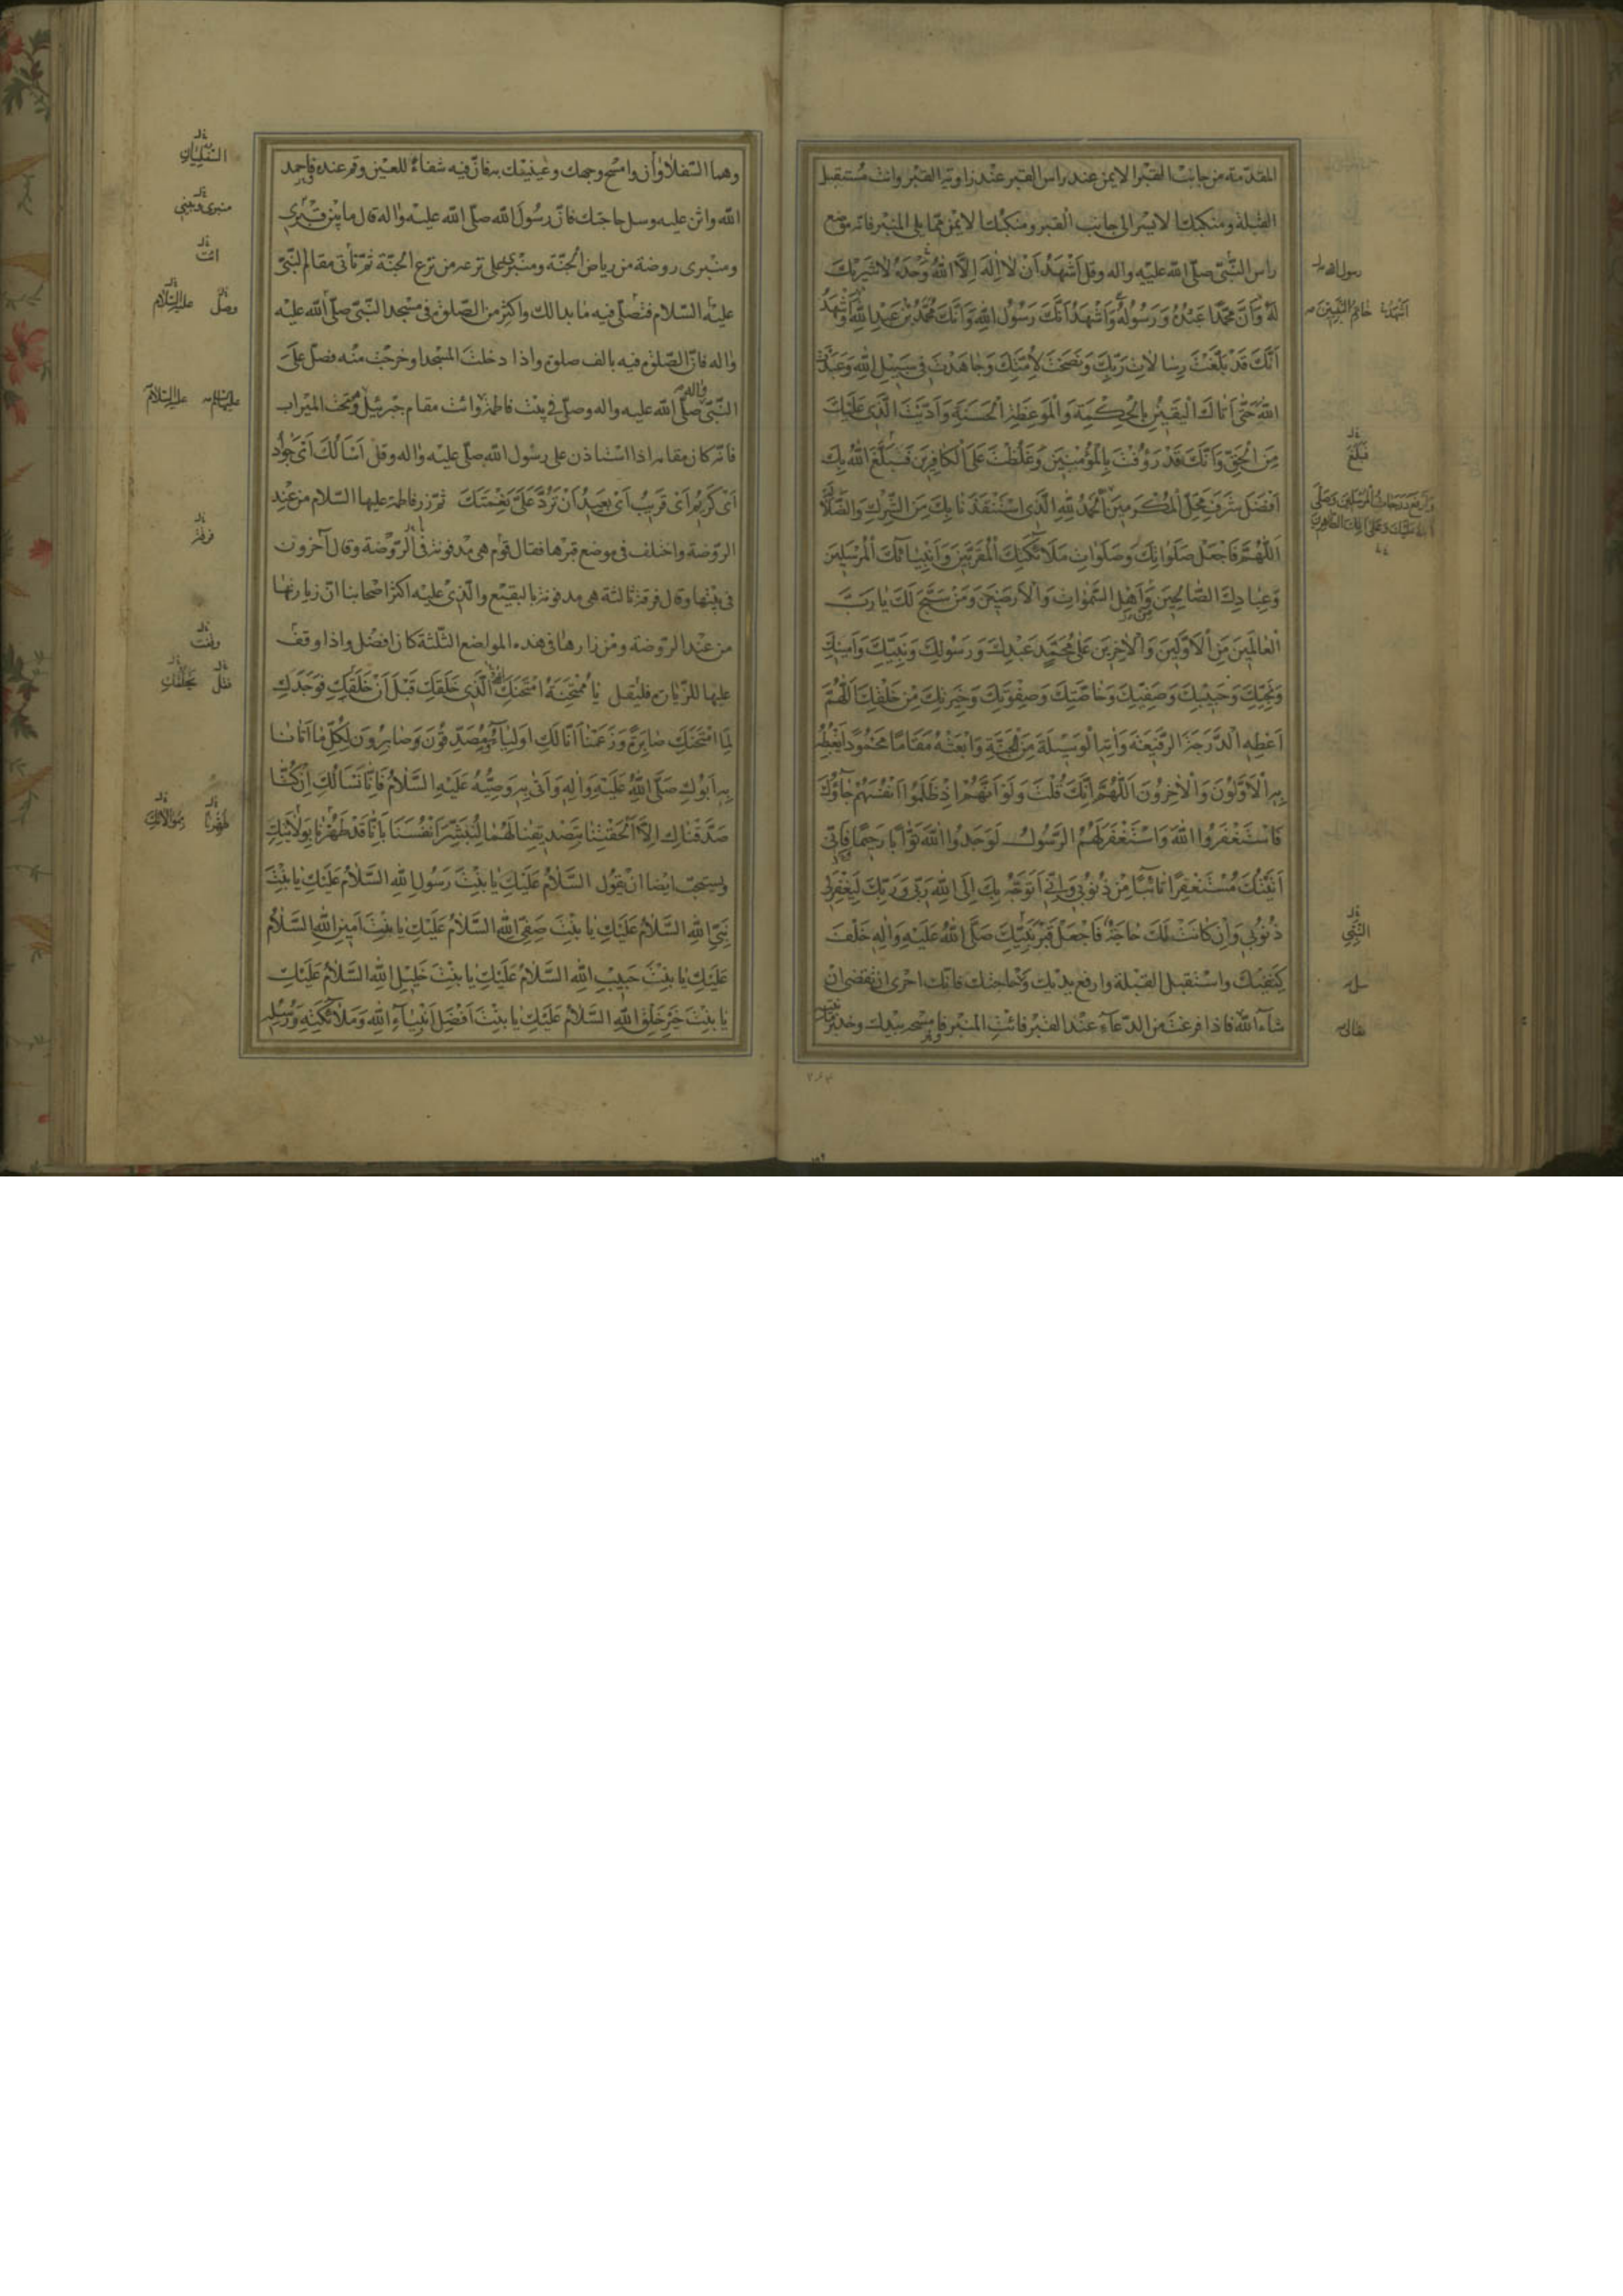 المقدّمة من جانب القبر الايمن عند راس القبر عند زاوية القبر وانت مستقبل
القبلة ومنكبك الايسر الى جانب القبر ومنكبك الايمن ممّا يلى المنبر فانه موضع
راس النّبىّ صلّى اللّه عليه واله وقل اَشْهَدُ اَنْ لٰا اِلٰهَ اِلَّا اللّٰهُ وَحْدَهُ لٰا شَرِيْكَ
لَهُ وَاَنَّ مُحَمَّدًا عَبْدُهُ وَرَسُولُهُ وَاَشْهَدُ اَنَّكَ رَسُولُ اللّٰهِ وَاَنَّكَ مُحَمَّدُ بْنُ عَبْدِ اللّٰهِ وَاَشْهَدُ
اَنَّكَ قَدْ بَلَّغْتَ رِسٰالٰاتِ رَبِّكَ وَنَصَحْتَ لِاُمَّتِكَ وَجٰاهَدْتَ فِى سَبِيْلِ اللّٰهِ وَعَبَدْتَ
اللّٰهَ حَتّٰى اَتٰاكَ الْيَقِيْنُ بِالْحِكْمَةِ وَالْمَوْعِظَةِ الْحَسَنَةِ وَاَدَّيْتَ الَّذِى عَلَيْكَ
مِنَ الْحَقِّ وَاَنَّكَ قَدْ رَؤُفْتَ بِالْمُؤْمِنِيْنَ وَغَلُظْتَ عَلَى الْكٰافِرِيْنَ فَبَلَّغَ اللّٰهُ بِكَ
اَفْضَلَ شَرَفِ مَحَلِّ الْمُكَرَّمِيْنَ اَلْحَمْدُ لِلّٰهِ الَّذِى اسْتَنْقَذَنٰا بِكَ مِنَ الشِّرْكِ وَالضَّلٰالَةِ
اَللّٰهُمَّ فَاجْعَلْ صَلَوٰاتِكَ وَصَلَوٰاتِ مَلٰائِكَتِكَ الْمُقَرَّبِيْنَ وَاَنْبِيٰائِكَ الْمُرْسَلِيْنَ
وَعِبٰادِكَ الصّٰالِحِيْنَ وَاَهْلِ السَّمٰوٰاتِ وَالْاَرَضِيْنَ وَمَنْ سَبَّحَ لَكَ يٰا رَبَّ
الْعٰالَمِيْنَ مِنَ الْاَوَّلِيْنَ وَالْاٰخِرِيْنَ عَلٰى مُحَمَّدٍ عَبْدِكَ وَرَسُولِكَ وَنَبِيِّكَ وَاَمِيْنِكَ
وَنَجِيِّكَ وَحَبِيْبِكَ وَصَفِيِّكَ وَخٰاصَّتِكَ وَصِفْوَتِكَ وَخِيَرَتِكَ مِنْ خَلْقِكَ اَللّٰهُمَّ
اَعْطِهِ الدَّرَجَةَ الرَّفِيْعَةَ وَاٰتِهِ الْوَسِيْلَةَ مِنَ الْجَنَّةِ وَابْعَثْهُ مَقٰامًا مَحْمُودًا يَغْبِطُهُ
بِهِ الْاَوَّلُونَ وَالْاٰخِرُونَ اَللّٰهُمَّ اِنَّكَ قُلْتَ وَلَوْ اَنَّهُمْ اِذْ ظَلَمُوا اَنْفُسَهُمْ جٰاؤُكَ
فَاسْتَغْفَرُوا اللّٰهَ وَاسْتَغْفَرَ لَهُمُ الرَّسُولُ لَوَجَدُوا اللّٰهَ تَوّٰابًا رَحِيْمًا
اَتَيْتُكَ مُسْتَغْفِرًا تٰائِبًا مِنْ ذُنُوبِى وَاِنِّى اَتَوَجَّهُ بِكَ اِلَى اللّٰهِ رَبِّى وَرَبِّكَ لِيَغْفِرَ لِى
ذُنُوبِى وَاِنْ كٰانَتْ لَكَ حٰاجَةٌ فَاجْعَلْ قَبْرَ نَبِيِّكَ صَلَّى اللّٰهُ عَلَيْهِ وَاٰلِهِ خَلْفَ
كتفيك واستقبل القبلة وارفع يديك حاجتك فانّك احرى ان تقضى ان
شآء اللّه فاذا فرغت من الدّعاء عند القبر فائت المنبر فامسحه بيدك وخذ
رسول الله
اَشْهَدُ خٰاتَمُ النَّبِيِّينَ
فَبَلَغَ
النَّبِىِّ
سل
تعالى
وهما السّفلاوان وامسح وجهك وعينيك به فانّ فيه شفاءً للعين وقم عنده فاحمد
اللّه واثن عليه وسل حاجتك فانّ رسُولَ اللّه صلّى اللّه عليه واٰله قال ما بين قبرى
ومنبرى روضة من رياض الجنّة ومنبرى على ترعه من ترع الجنّة ثمّ تأتى مقام النّبىّ
عليه السّلام فتصلّى فيه ما بدا لك واكثر من الصّلوة فى مسْجد النّبىّ صلّى اللّه عليه
واٰله فانّ الصّلوة فيه بالف صلوة واذا دخلت المسْجد او خرجت منه فصلّ على
النّبىّ صلّى اللّه عليه واله وصلّ فى بيت فاطمة وائت مقام جبرئيل وهو تحت الميزاب
فانّه كان مقامه اذا استاذن على رسول اللّه صلّى عليه واٰله وقل اَسْاَلُكَ اَىْ جَوٰادُ
اَىْ كَرِيْمُ اَىْ قَرِيْبُ اَىْ بَعِيْدُ اَنْ تَرُدَّ عَلَىَّ نِعْمَتَكَ ثمّ زر فاطمة عليها السّلام من عند
الرّوضة واختلف فى موضع قبرها فقال قوم هى مدفونة فى الرّوضة وقال آخرون
فى بيتها وقال فرقة ثالثة هى مدفونة بالبقيع والّذى عليه اكثر اصحابنا انّ زيارتها
من عند الرّوضة ومن زارها فى هذه المواضع الثّلثة كان افضل واذا وقف
عليها للزّيارة فليقل يٰا مُمْتَحَنَةُ امْتَحَنَكِ الَّذِى خَلَقَكِ قَبْلَ اَنْ خَلَقَكِ فَوَجَدَكِ
لِمَا امْتَحَنَكِ صٰابِرَةً وَزَعَمْنٰا اَنّٰا لَكِ اَوْلِيٰآءُ وَمُصَدِّقُونَ وَصٰابِرُونَ لِكُلِّ مٰا اَتٰانٰا
بِهِ اَبُوكِ صَلَّى اللّٰهُ عَلَيْهِ وَاٰلِهِ وَاَتٰى بِهِ وَصِيُّهُ عَلَيْهِ السَّلٰامُ فَاِنّٰا نَسْاَلُكِ اِنْ كُنّٰا
صَدَّقْنٰاكِ اِلَّا اَلْحَقْتِنٰا بِتَصْدِيْقِنٰا لَهُمٰا لِنُبَشِّرَ اَنْفُسَنٰا بِاَنّٰا قَدْ طَهُرْنٰا بِوَلٰايَتِكِ
ويستحبّ ايضا ان يقول السَّلٰامُ عَلَيْكِ يٰا بِنْتَ رَسُولِ اللّٰهِ السَّلٰامُ عَلَيْكِ يٰا بِنْتَ
نَبِىِّ اللّٰهِ السَّلٰامُ عَلَيْكِ يٰا بِنْتَ صَفِىِّ اللّٰهِ السَّلٰامُ عَلَيْكِ يٰا بِنْتَ اَمِيْنِ اللّٰهِ السَّلٰامُ
عَلَيْكِ يٰا بِنْتَ حَبِيْبِ اللّٰهِ السَّلٰامُ عَلَيْكِ يٰا بِنْتَ خَلِيْلِ اللّٰهِ السَّلٰامُ عَلَيْكِ
يٰا بِنْتَ خَيْرِ خَلْقِ اللّٰهِ السَّلٰامُ عَلَيْكِ يٰا بِنْتَ اَفْضَلِ اَنْبِيٰآءِ اللّٰهِ وَمَلٰائِكَتِهِ وَرُسُلِهِ
ائت
وصلّ عليه السّلام